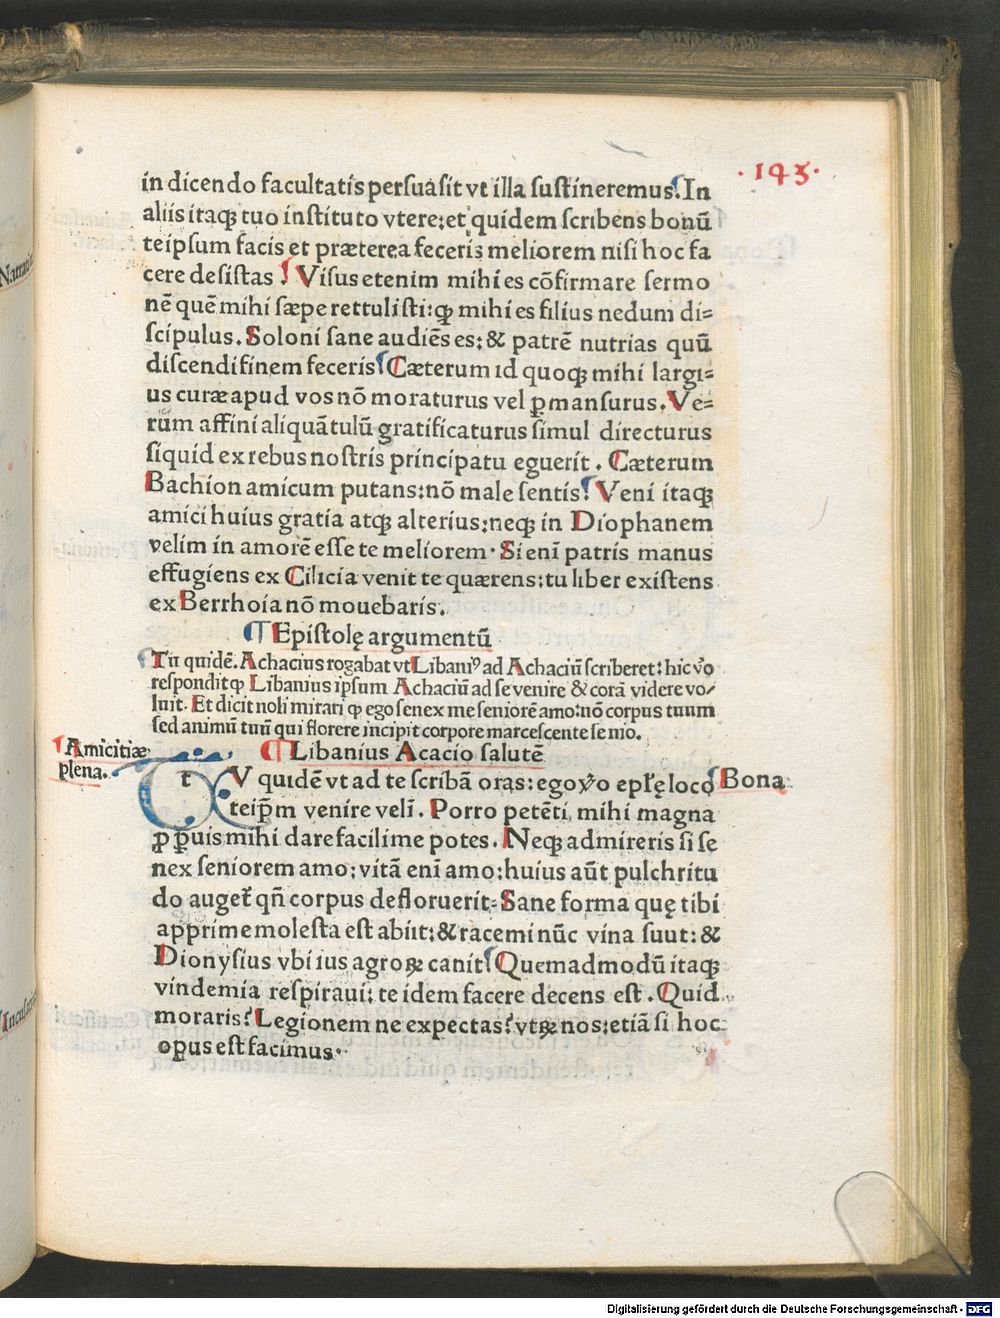 · 143 ·
in dicendo facultatis persuasit vt illa sustineremus. In
aliis itaqꝫ tuo instituto vtere: et quidem scribens bonū
teipsum facis et præterea feceris meliorem nisi hoc fa
cere desistas Visus etenim mihi es cōfirmare sermo
nē quē mihi sæpe rettulisti: ꝙ mihi es filius nedum di=
scipulus. Soloni sane audiēs es: & patrē nutrias quū
discendi finem feceris Cæterum id quoqꝫ mihi largi=
us curæ apud vos nō moraturus vel ꝑmansurus. Ve=
rum affini aliquātulū gratificaturus simul directurus
siquid ex rebus nostris principatu eguerit. Cæterum
Bachion amicum putans: nō male sentis. Veni itaqꝫ
amici huius gratia atqꝫ alterius: neqꝫ in Diophanem
velim in amorē esse te meliorem. Si eni patris manus
effugiens ex Cilicia venit te quærens: tu liber existens
ex Berrhoia nō mouebaris.
¶ Epistolę argumentū
Tu quidē. Achacius rogabat vt Libaniꝰ ad Achaciū scriberet: hic v̊o
respondit ꝙ Libanius ipsum Achaciū ad se venire & corā videre vo/
luit. Et dicit noli mirari ꝙ ego senex me seniorē amo: nō corpus tuum
sed animū tuū qui florere incipit corpore marcescente senio.
Amicitiæ
plena.
¶ Libanius Acacio salutē
tV quidē vt ad te scribā oras: ego v̊o epł̄ę loco
Bona
teip̄m venire veli. Porro petēti, mihi magna
ꝓ ꝑuis mihi dare facilime potes. Neqꝫ admireris si se
nex seniorem amo: vitā eni amo: huius aūt pulchritu
do auget̄ qn̄ corpus defloruerit: Sane forma quę tibi
apprime molesta est abiit: & racemi nūc vina suut: &
Dionysius vbi ius agroꝝ canit Quemadmodū itaqꝫ
vindemia respiraui: te idem facere decens est. Quid
moraris? Legionem ne expectas? vtꝝ nos: etiā si hoc
opus est facimus.
Narratio
Digitalisierung gefördert durch die Deutsche Forschungsgemeinschaft - DFG